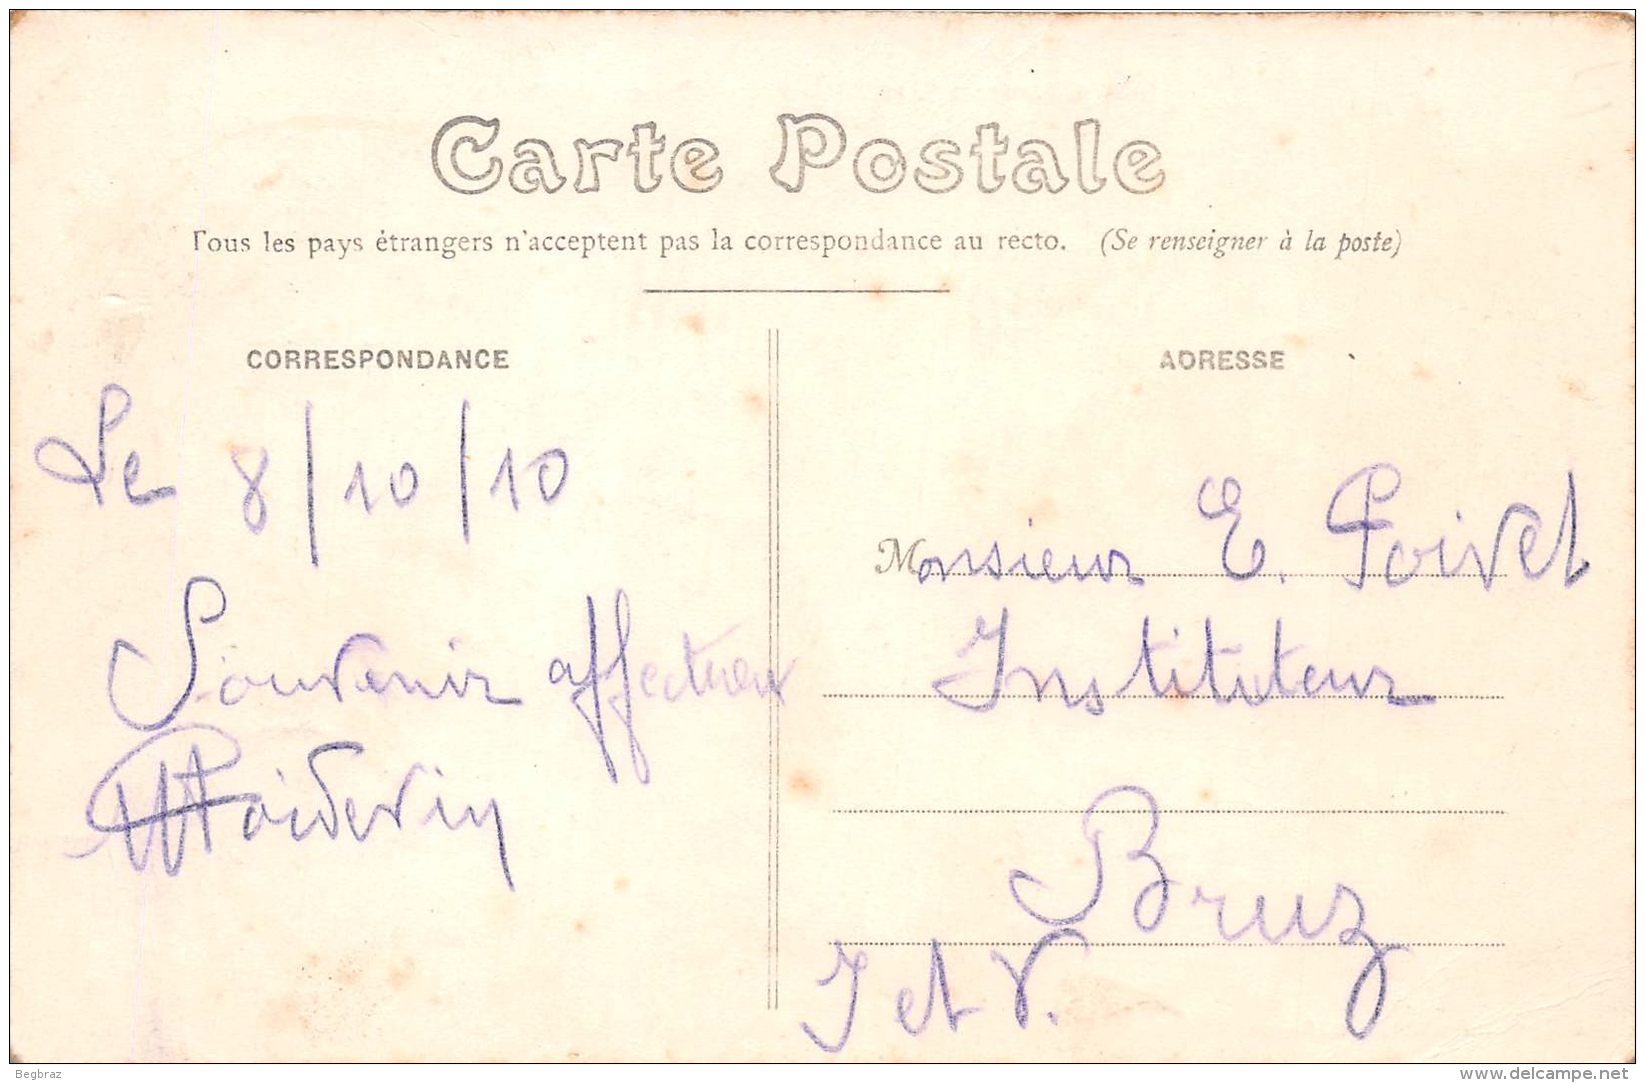 Carte Postale
Tous les pays étrangers n'acceptent pas la correspondance au recto. (Se renseigner à la poste)
CORRESPONDANCE
Le 8/10/10
Souvenir affectueux
ADRESSE
Monsieur E. Poivet
Instituteur
Bruz
I et V.
Begbraz
www.delcampe.net